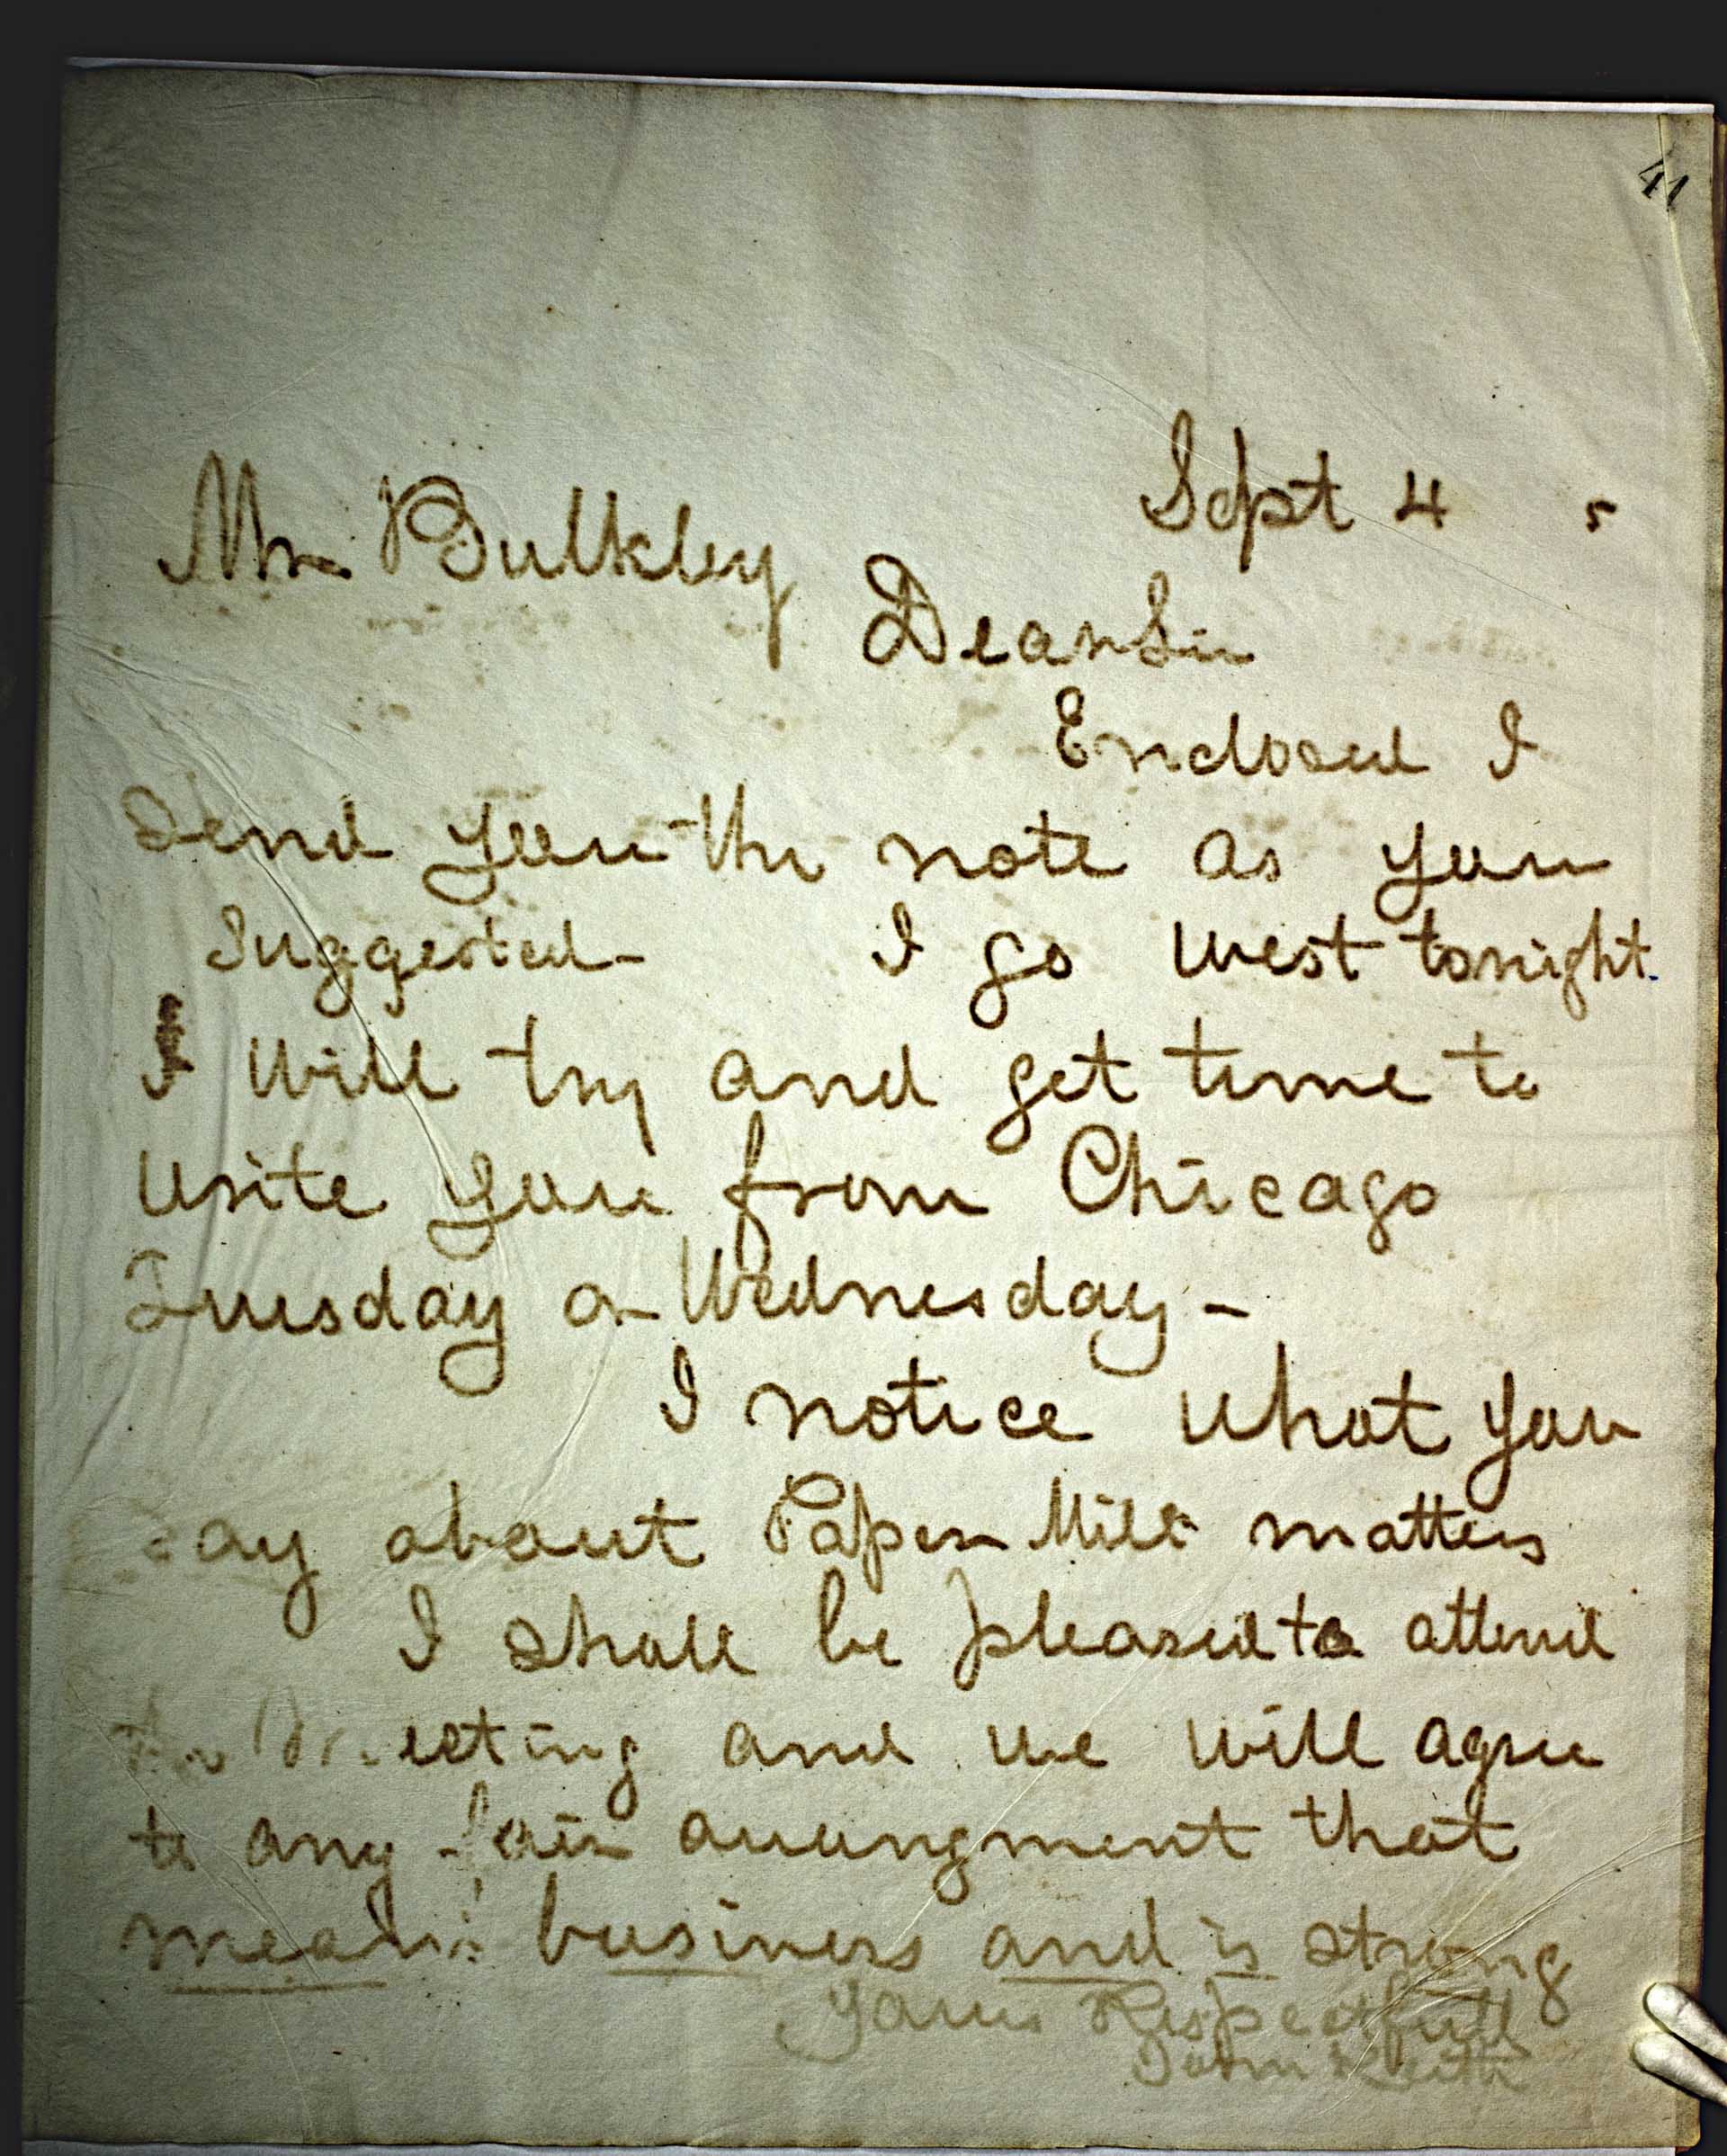 41
Sept 4 5
Mr. Bulkley
Dear Sir
Enclosed I
Send you the note as you
Suggested - I go west tonight.
I will try and get time to
write you from Chicago
Tuesday or Wednesday -
I notice what you
say about Paper Mill matters
I shall be pleased to attend
the Meeting and we will agree
to any fair arrangment that
means business and is strong
Yours Respectfull
John Keith